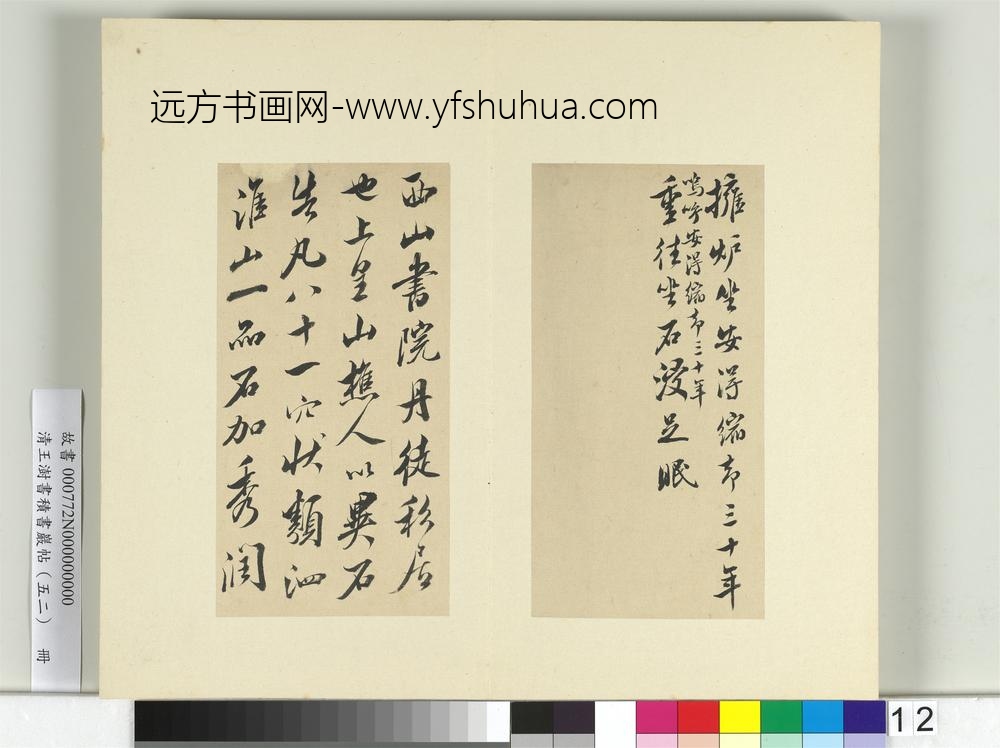 远方书画网-www.yfshuhua.com
擁炉坐安得縮却三十年
嗚呼安得縮却三十年
重往坐石浸足眠
西山書院丹徒私居
也上皇山樵人以異石
告凡八十一穴状類泗
淮山一品石加秀潤
故書 000772N000000000
清王澍書積書巖帖（五二） 冊
12